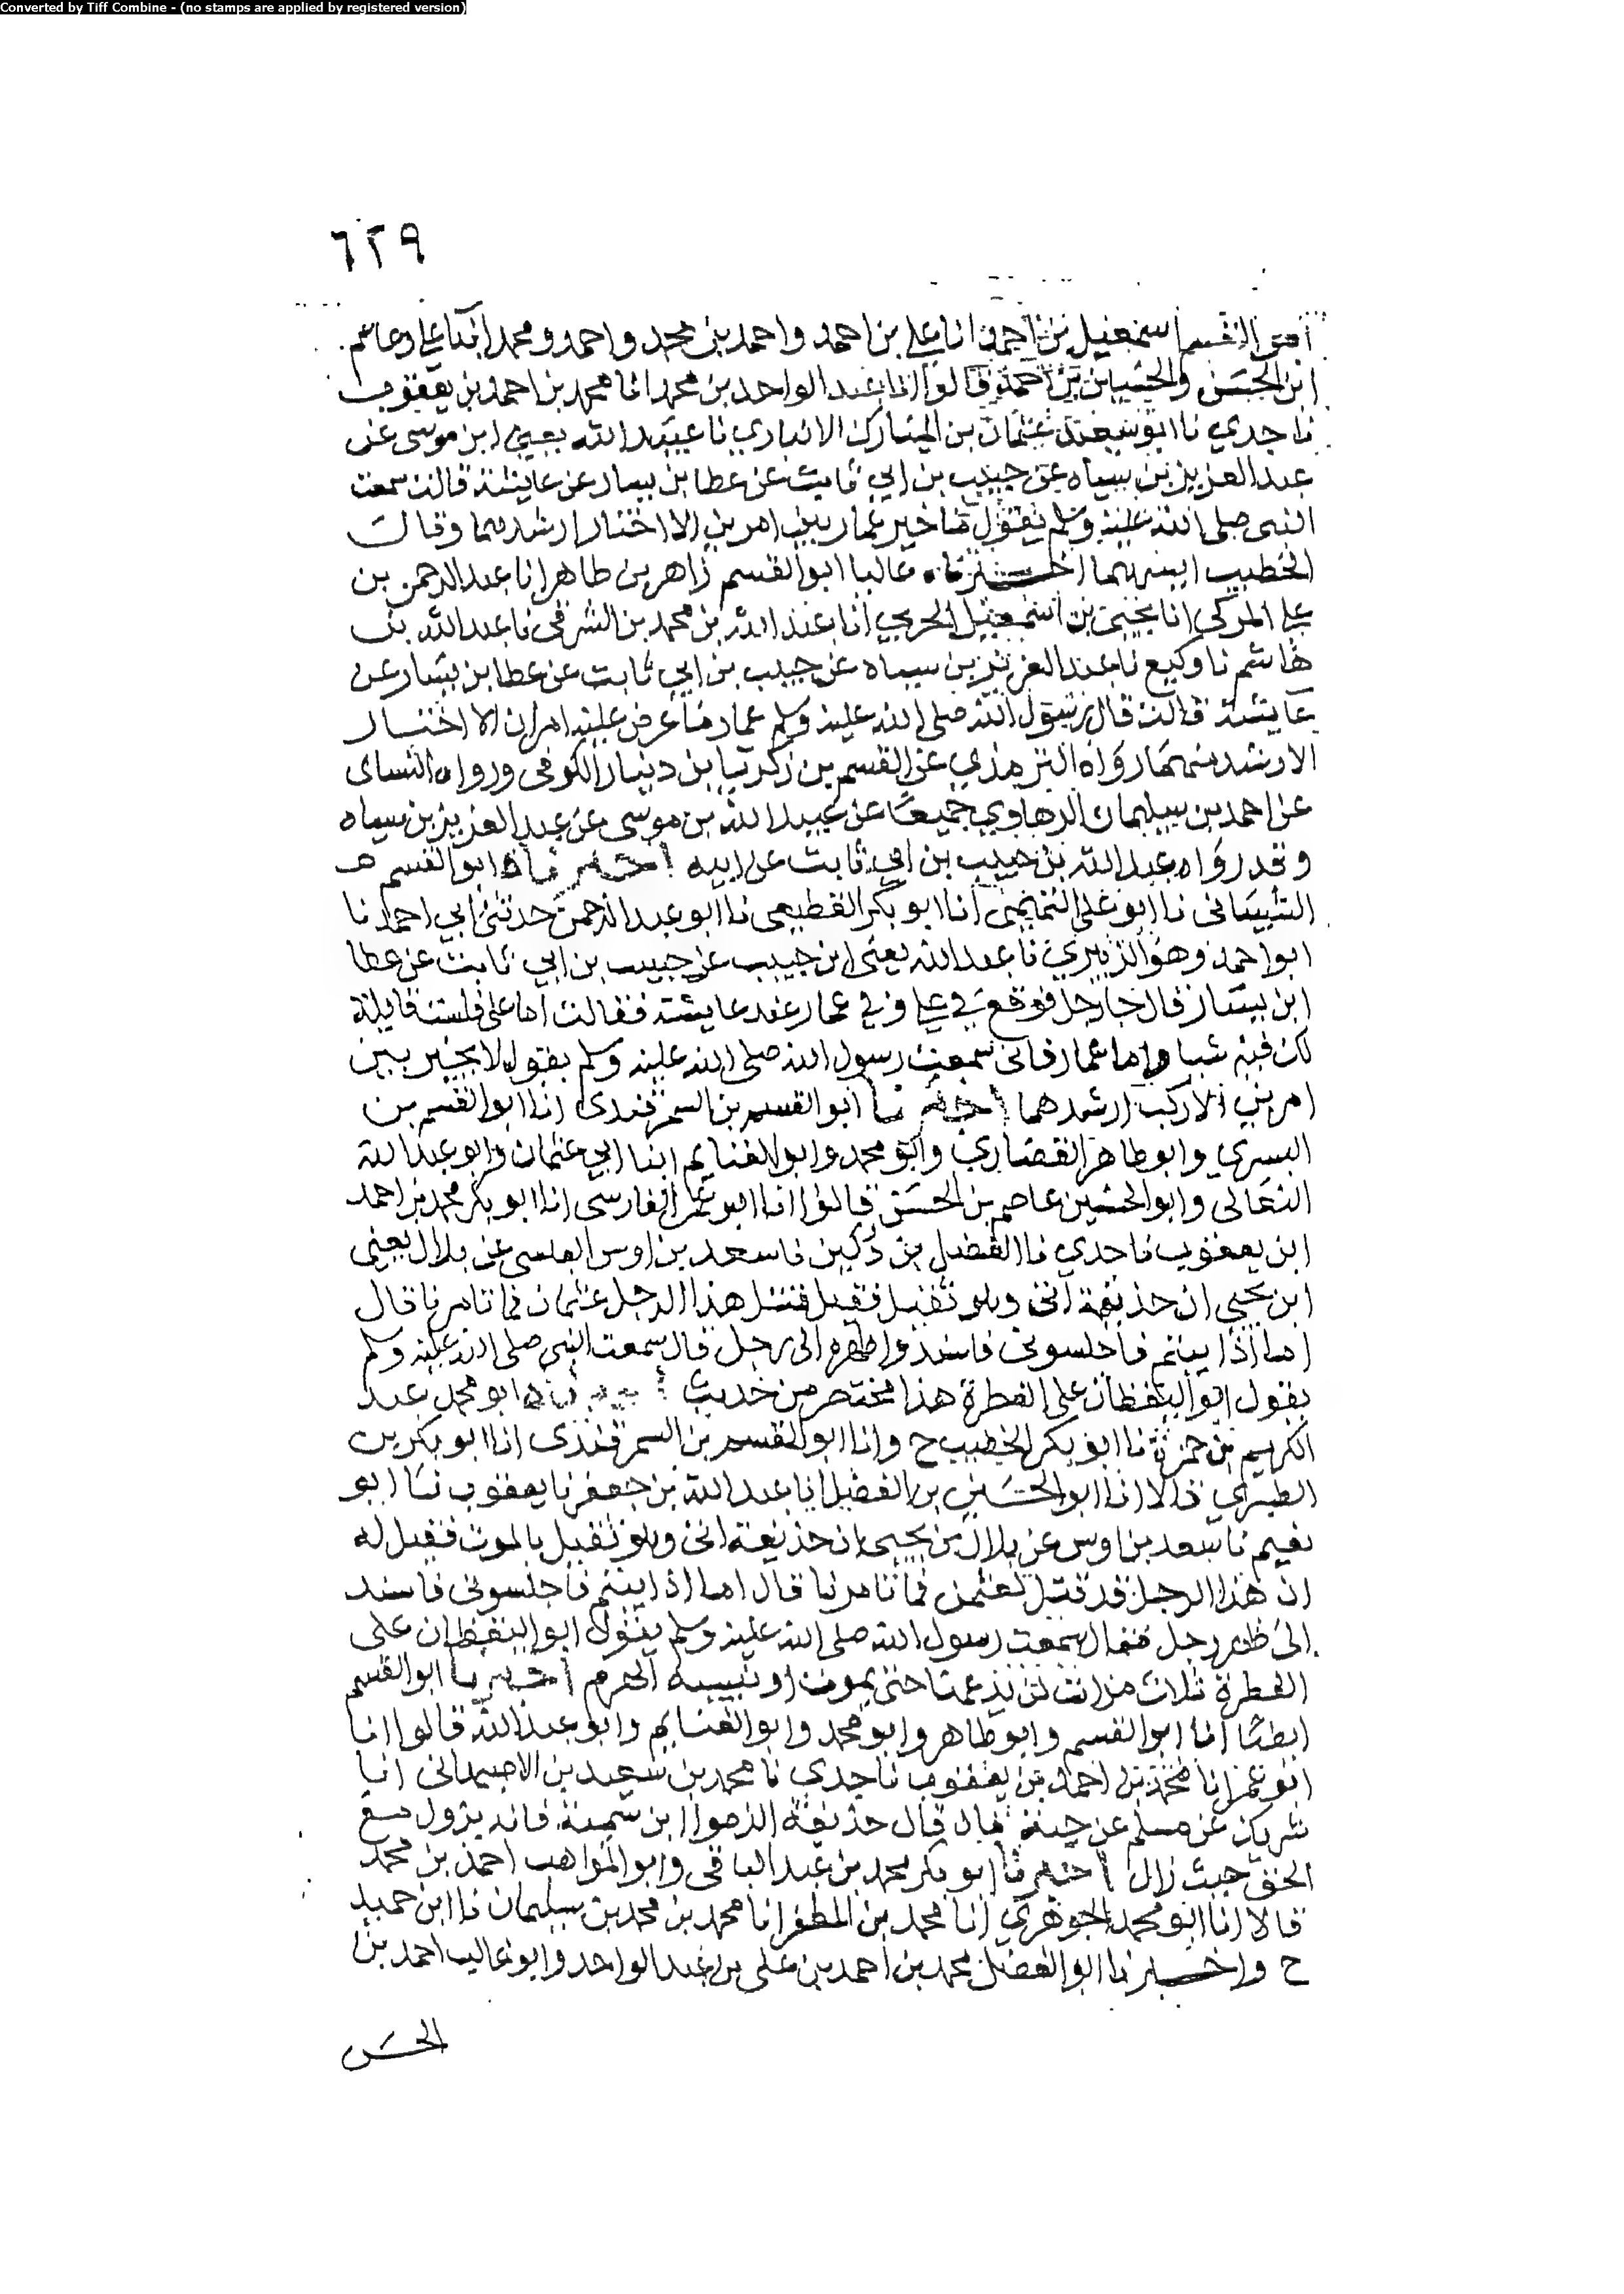 Converted by Tiff Combine - (no stamps are applied by registered version)
٦٢٩
ابو القسم اسمعيل بن احمد انا علي بن احمد واحمد بن محمد واحمد ومحمد ابنا علي وعاصم
ابن الحسن والحسين بن احمد قالوا انا عبد الواحد بن محمد انا محمد بن احمد بن يعقوب
نا جدي نا ابو سعيد عثمان بن المبارك الانباري نا عبيد الله يعني ابن موسى عن
عبد العزيز بن سياه عن حبيب بن ابي ثابت عن عطا بن يسار عن عايشة قالت سمعت
النبي صلى الله عليه وسلم يقول ما خير عمار بين امرين الا اختار ارشدهما وقال
الخطيب ايسرهما اخبرناه عاليا ابو القسم زاهر بن طاهر انا عبد الرحمن بن
علي المزكي انا يحيى بن اسمعيل الحربي انا عبد الله بن محمد بن الشرقي نا عبد الله بن
هاشم نا وكيع نا عبد العزيز بن سياه عن حبيب بن ابي ثابت عن عطا بن يسار عن
عايشة قالت قال رسول الله صلى الله عليه وسلم عمار ما عرض عليه امران الا اختار
الارشد منهما رواه الترمذي عن القسم بن زكريا بن دينار الكوفي ورواه النساي
عن احمد بن سليمان الرهاوي جميعا عن عبيد الله بن موسى عن عبد العزيز بن سياه
وقد رواه عبد الله بن حبيب بن ابي ثابت عن ابيه اخبرناه ابو القسم
الشيباني نا ابو علي التميمي انا ابو بكر القطيعي نا ابو عبد الرحمن حدثني ابي احمد نا
ابو احمد وهو الزبيري نا عبد الله يعني ابن حبيب عن حبيب بن ابي ثابت عن عطا
ابن يسار قال جا رجل فوقع في علي وفي عمار عند عايشة فقالت اما علي فلست قايلة
لك فيه شيا واما عمار فاني سمعت رسول الله صلى الله عليه وسلم يقول لا يخير بين
امرين الا ركب ارشدهما اخبرنا ابو القسم بن السمرقندي انا ابو القسم بن
البسري وابو طاهر القصاري وابو محمد وابو الغنايم ابنا ابي عثمان وابو عبد الله
النعالي وابو الحسين عاصم بن الحسن قالوا انا ابو عمر الفارسي انا ابو بكر محمد بن احمد
ابن يعقوب نا جدي نا الفضل بن دكين نا سعد بن اوس العبسي عن بلال يعني
ابن يحيى ان حذيفة اتى وهو ثقيل فقيل قتل هذا الرجل عثمان فما تامرنا قال
اما اذا ابيتم فاجلسوني فاسندوا ظهره الى رجل قال سمعت النبي صلى الله عليه وسلم
يقول ابو اليقظان على الفطرة هذا مختصر من حديث اخبرناه ابو محمد عبد
الكريم بن حمزة نا ابو بكر الخطيب ح وانا ابو القسم بن السمرقندي انا ابو بكر بن
الطبري قالا انا ابو الحسين بن الفضل انا عبد الله بن جعفر نا يعقوب نا ابو
نعيم نا سعد بن اوس عن بلال بن يحيى ان حذيفة اتى وهو ثقيل بالموت فقيل له
ان هذا الرجل قد قتل لعثمن فما تامرنا قال اما اذا ابيتم فاجلسوني فاسند
الى ظهر رجل فقال سمعت رسول الله صلى الله عليه وسلم يقول ابو اليقظان على
الفطرة ثلاث مرات لن يدعها حتى يموت او ينسيه الهرم اخبرنا ابو القسم
ايضا انا ابو القسم وابو طاهر وابو محمد وابو الغنايم وابو عبد الله قالوا انا
ابو عمر انا محمد بن احمد بن يعقوب نا جدي نا محمد بن سعيد بن الاصبهاني انا
شريك عن مسلم عن حبة قال قال حذيفة الزموا ابن سمية فانه يزول مع
الحق حيث زال اخبرنا ابو بكر محمد بن عبد الباقي وابو المواهب احمد بن محمد
قالا انا ابو محمد الجوهري انا محمد بن المظفر انا محمد بن محمد بن سليمان نا ابن حميد
ح واخبرنا ابو الفضل محمد بن احمد بن علي بن عبد الواحد وابو غالب احمد بن
الحسن